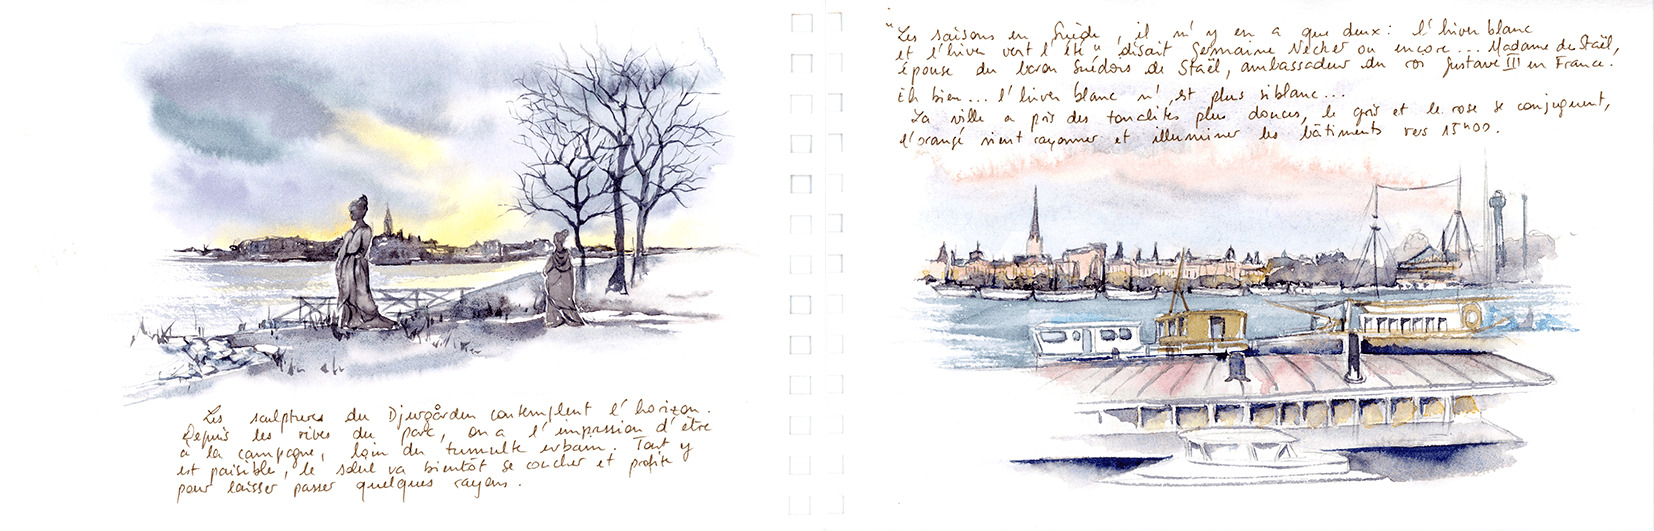 Les sculptures du Djurgården contemplent l'horizon.
Depuis les rives du parc, on a l'impression d'être
à la campagne, loin du tumulte urbain. Tout y
est paisible, le soleil va bientôt se coucher et profite
pour laisser passer quelques rayons.
"Les saisons en Suède, il n'y en a que deux : l'hiver blanc
et l'hiver vert l'été" disait Germaine Necker ou encore... Madame de Staël,
épouse du baron Suédois de Staël, ambassadeur du roi Gustave III en France.
Eh bien... l'hiver blanc n'est plus si blanc...
La ville a pris des tonalités plus douces, le gris et le rose se conjuguent,
l'orangé vient rayonner et illuminer les bâtiments vers 15h00.